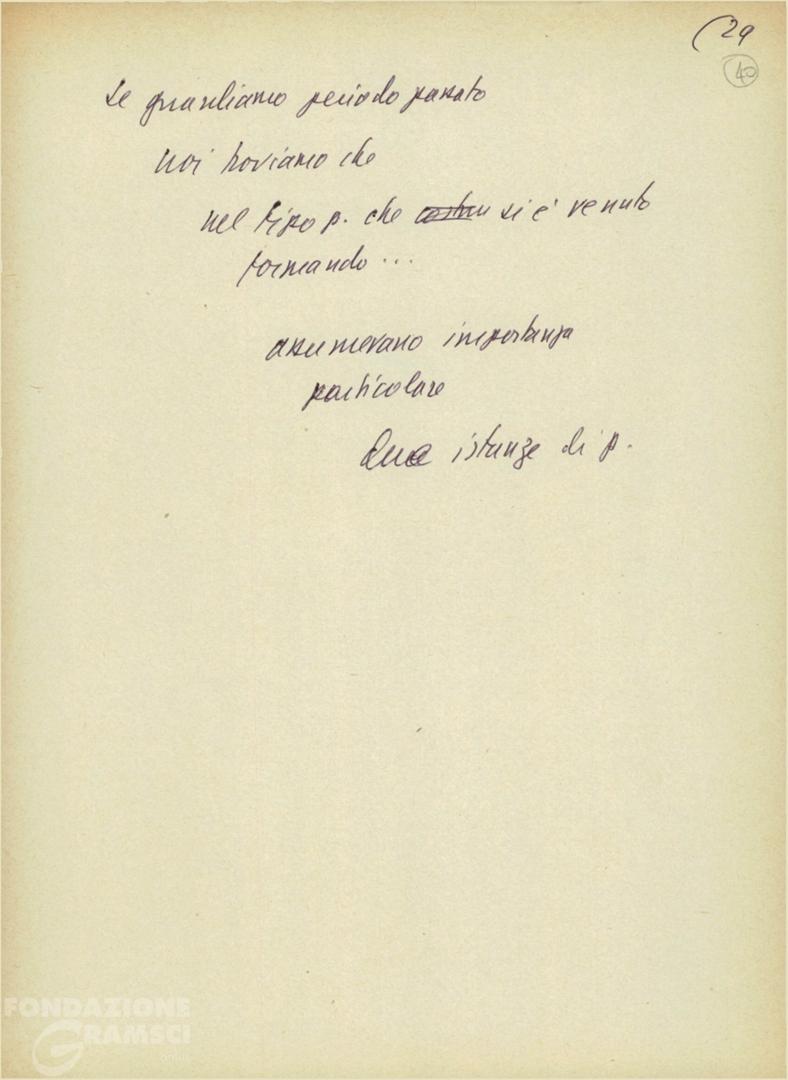 (29
40
Se guardiamo periodo passato
noi troviamo che
nel tipo p. che si è venuto
formando...
assumevano importanza
particolare
Due istanze di p.
FONDAZIONE
GRAMSCI
onlus